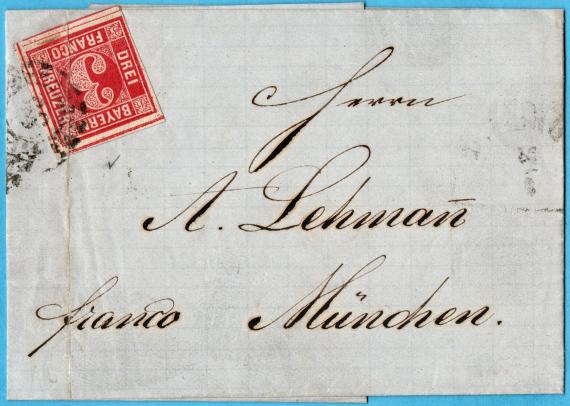 BAYERN
DREI
FRANCO
KREUZER
3
Herrn
A. Lehmañ
franco München.